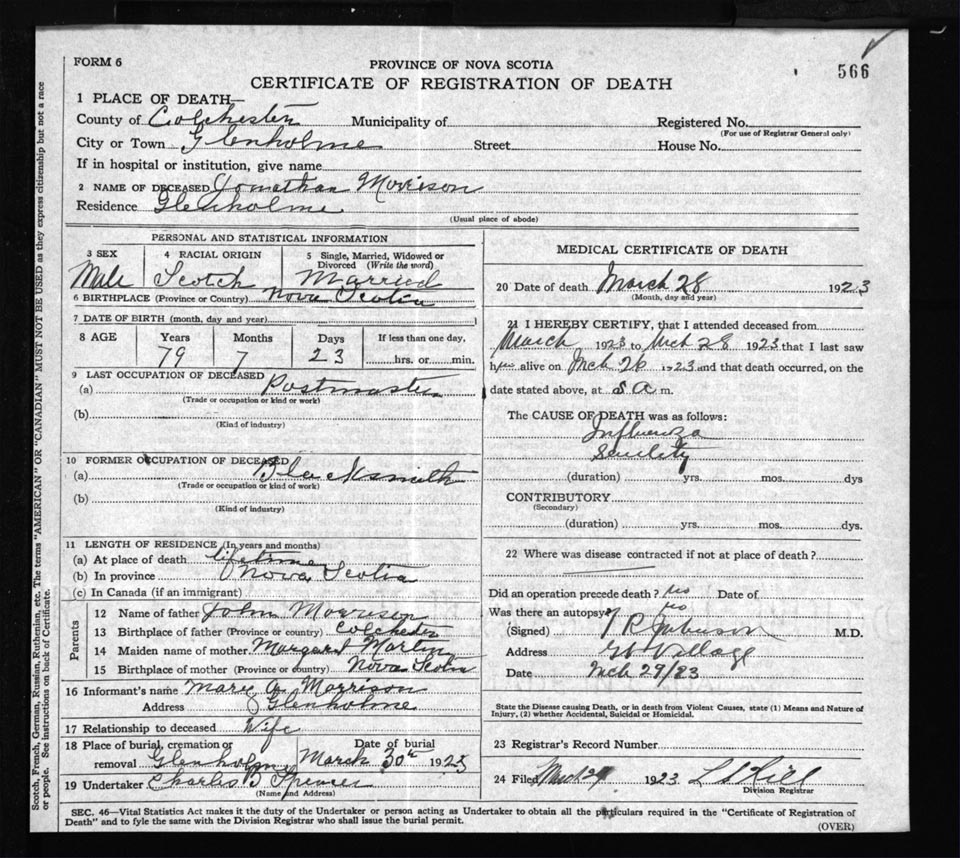 FORM 6
PROVINCE OF NOVA SCOTIA
566
CERTIFICATE OF REGISTRATION OF DEATH
1 PLACE OF DEATH—
County of Colchester Municipality of Registered No.
(For use of Registrar General only)
City or Town Glenholme Street House No.
If in hospital or institution, give name
2 NAME OF DECEASED Jonathan Morrison
Residence Glenholme
(Usual place of abode)
PERSONAL AND STATISTICAL INFORMATION
3 SEX 4 RACIAL ORIGIN 5 Single, Married, Widowed or
Divorced (Write the word)
Male Scotch Married
6 BIRTHPLACE (Province or Country) Nova Scotia
7 DATE OF BIRTH (month, day and year)
8 AGE Years Months Days If less than one day,
79 7 23 hrs. or min.
9 LAST OCCUPATION OF DECEASED
(a) Postmaster
(Trade or occupation or kind or work)
(b)
(Kind of industry)
10 FORMER OCCUPATION OF DECEASED
(a) Blacksmith
(Trade or occupation or kind of work)
(b)
(Kind of industry)
11 LENGTH OF RESIDENCE (In years and months)
(a) At place of death lifetime
(b) In province Nova Scotia
(c) In Canada (if an immigrant)
Parents
12 Name of father John Morrison
13 Birthplace of father (Province or country) Colchester
14 Maiden name of mother Margaret
15 Birthplace of mother (Province or country) Nova Scotia
16 Informant's name Mary Morrison
Address Glenholme
17 Relationship to deceased Wife
18 Place of burial, cremation or Date of burial
removal Glenholme March 30th 1923
19 Undertaker Charles Spencer
(Name and Address)
MEDICAL CERTIFICATE OF DEATH
20 Date of death March 28 1923
(Month, day and year)
21 I HEREBY CERTIFY, that I attended deceased from
March 1923 to Mch 28 1923 that I last saw
h alive on Mch 26 1923 and that death occurred, on the
date stated above, at 8 a m.
The CAUSE OF DEATH was as follows:
Influenza
(duration) yrs. mos. dys
CONTRIBUTORY
(Secondary)
(duration) yrs. mos. dys.
22 Where was disease contracted if not at place of death?
Did an operation precede death? no Date of
Was there an autopsy? no
(Signed) M.D.
Address Village
Date Mch 29/23
State the Disease causing Death, or in death from Violent Causes, state (1) Means and Nature of
Injury, (2) whether Accidental, Suicidal or Homicidal.
23 Registrar's Record Number
24 Filed 1923 Hill
Division Registrar
SEC. 46—Vital Statistics Act makes it the duty of the Undertaker or person acting as Undertaker to obtain all the particulars required in the "Certificate of Registration of
Death" and to fyle the same with the Division Registrar who shall issue the burial permit.
(OVER)
Scotch, French, German, Russian, Ruthenian, etc. The terms "AMERICAN" OR "CANADIAN" MUST NOT BE USED as they express citizenship but not a race
or people. See instructions on back of Certificate.